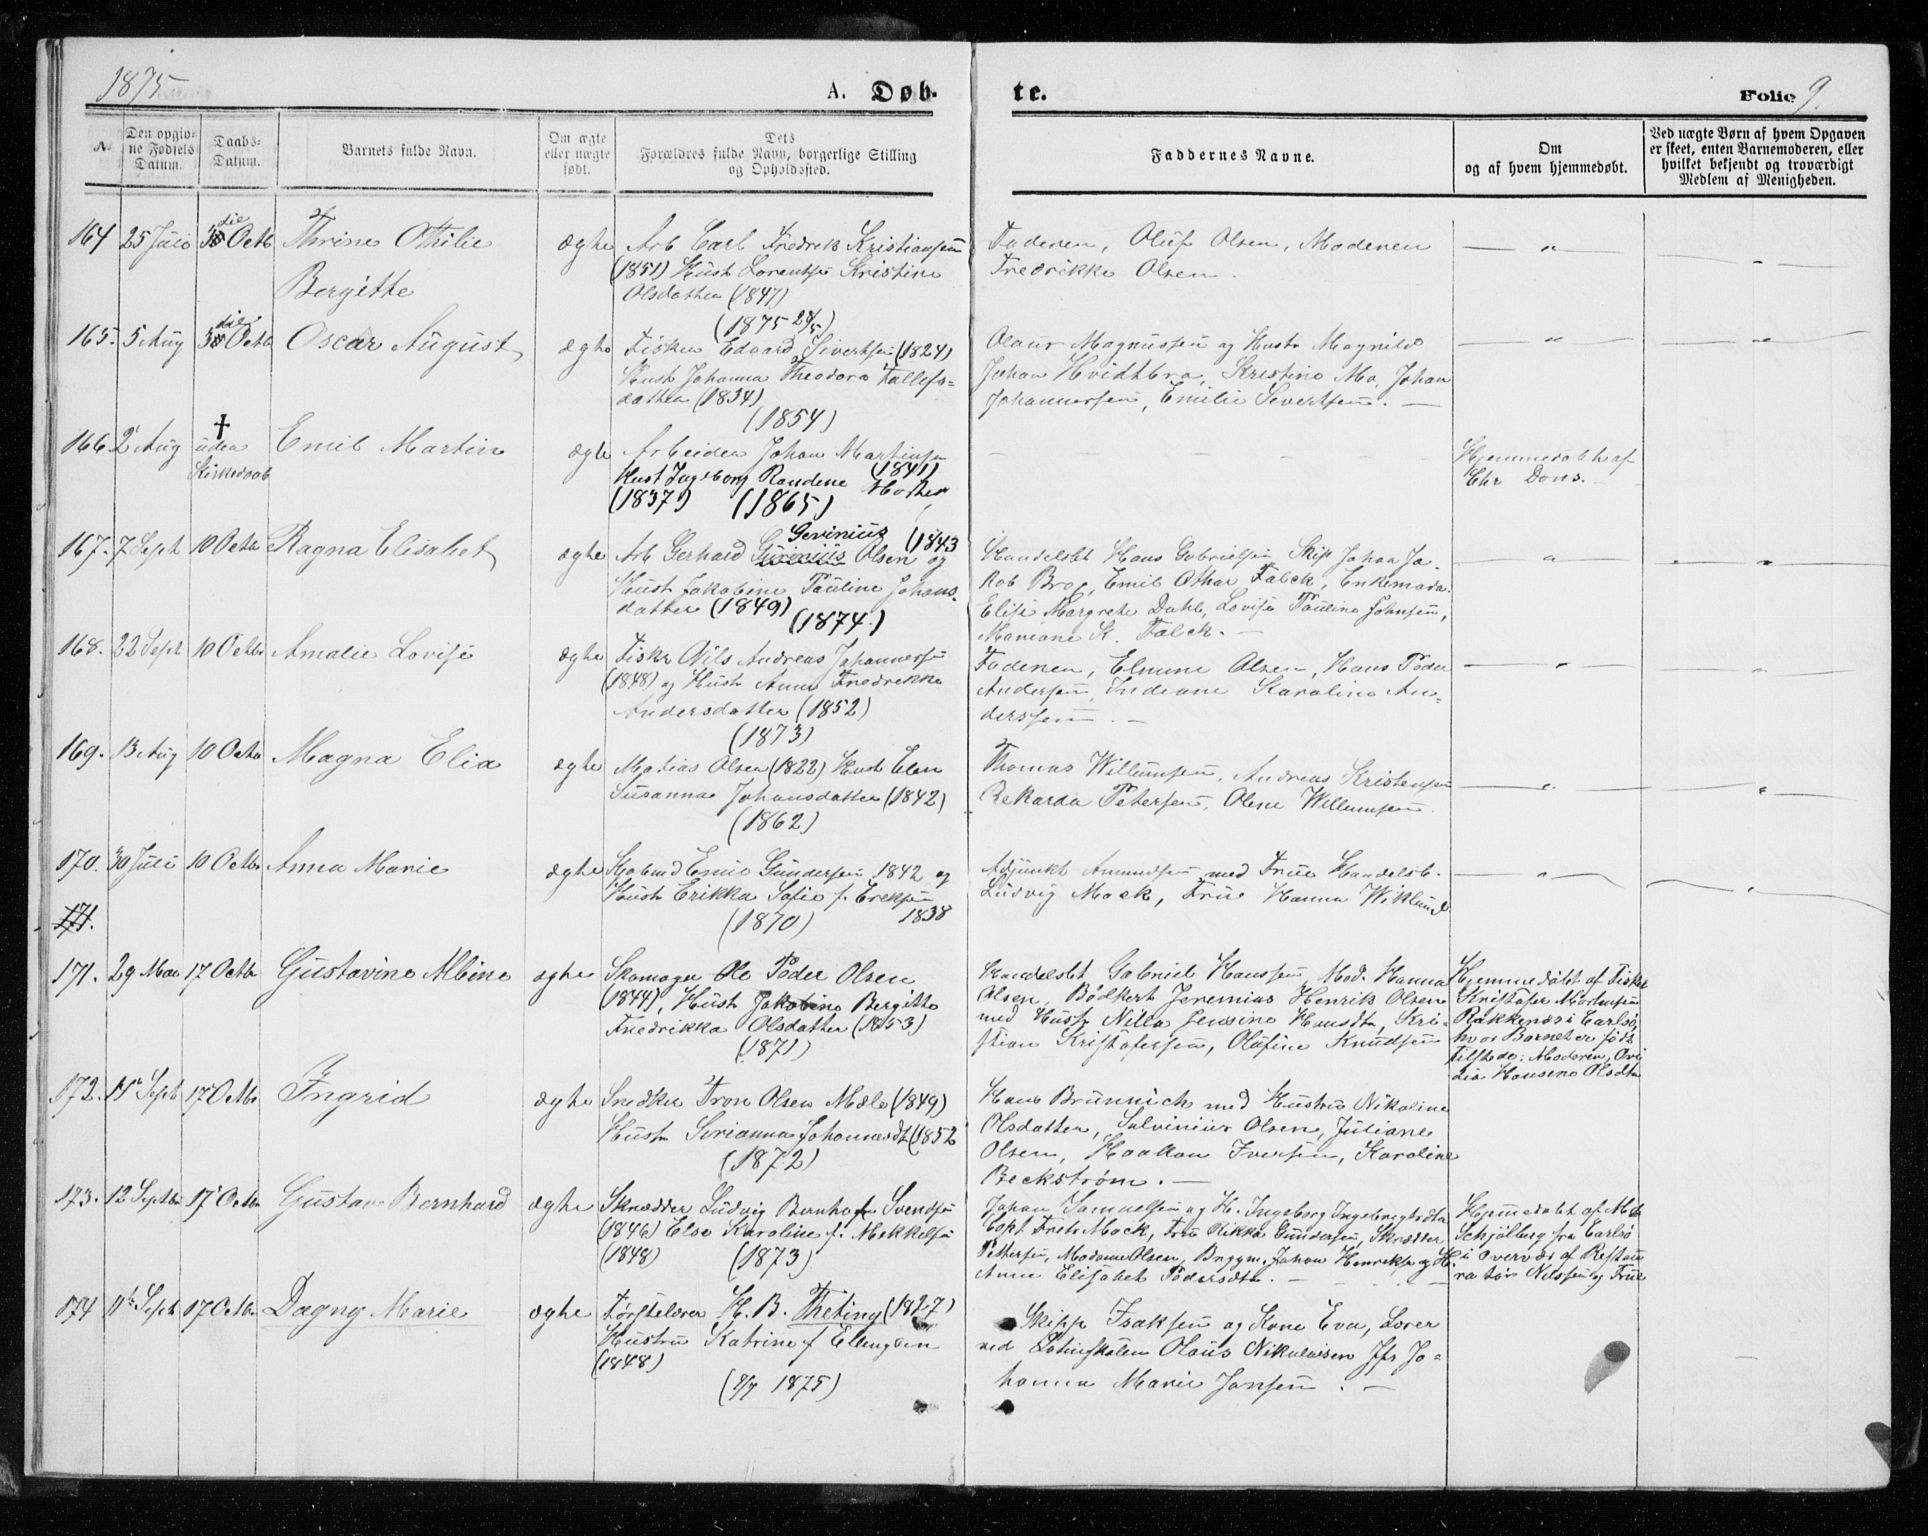 1875
A. Døb-
te.
Folio 9.
No
Den opgiv-
ne Fødsels
Datum.
Daabs-
Datum.
Barnets fulde Navn.
Om ægte
eller uægte
født.
Dets
Forældres fulde Navn, borgerlige Stilling
og Opholdssted.
Faddernes Navne.
Om
og af hvem hjemmedøbt.
Ved uægte Børn af hvem Opgaven
er skeet, enten Barnemoderen, eller
hvilket bekjendt og troværdigt
Medlem af Menigheden.
164 25 Juli 3die Octb Thrine Othilie
Bergitte
ægte
Arb Carl Fredrek Kristiansen
(1851) Hust Lorentse Kristine
Olsdatter (1847)
(1875 28/5)
Faderen, Oluf Olsen, Moderen
Fredrikke Olsen.
165. 5 Aug 3die Octb Oscar August
ægte
Fisker Edvard Sivertsen (1824)
Hust Johanna Theodora Tollefs-
datter (1834)
(1854)
Olaus Magnussen og Hustr Magnild
Johan Hvidtbro, Kristine Mo, Johan
Johannessen, Emilie Sivertsen. —
166 2 Aug † uden
Kirkedaab
Emil Martin
ægte
Arbeider Johan Martinsen
(1841)
Hust Ingeborg Randine Mortens
(1837) (1865)
Hjemmedøbt af
Chr Dons. —
167. 7 Sept 10 Octbr Ragna Elisabet
ægte
Gerinius (1843
Arb Gerhard Gurinius Olsen og
Hust Jakobine Pauline Johans-
datter (1849) (1874)
Handelsbt Hans Gabrielsen Skip Johan Ja-
kob Brox, Emil Othar Falck, Enkemada
Elise Margrete Dahl, Lovise Pauline Johnsen,
Mariane K. Falck. —
168. 22 Sept 10 Octbr Amalie Lovise
ægte
Fiskr Nils Andreas Johannessen
(1848) og Hust Anne Fredrikke
Andersdatter (1852)
(1873)
Faderen, Elmine Olsen, Hans Peder
Andersen, Indiane Karoline An-
derssen. —
169. 13 Aug 10 Octb Magna Elia
ægte
Matias Olsen (1822) Hust Elen
Susanna Johansdatter (1842)
(1862)
Thomas Willumsen, Andreas Kristensen
Rekarda Petersen, Oline Willumsen.
170. 30 Juli 10 Octbr Anna Marie
ægte
Emil Gundersen 1842 og
Hust Erikka Sofie f. Ereksen
(1870) 1838
Adjunkt Amundsen med Frue Handelsb.
Ludvig Mack, Frue Hanna Wiklund
171.
171. 29 Mai 17 Octbr Gustavine Albine
ægte
Skomager Ole Peder Olsen
(1844), Hust Jakobine Bergitte
Fredrikka Olsdatter (1853)
(1871)
Handelsbt Gabriel Hanssen, Mad. Hanna
Olsen, Bødkert Jeremias Henrik Olsen
med Hustr Nilla Jensine Hansdt, Kri-
stian Kristofersen, Olufine Knudsen
Hjemmedøbt af Fisker
Kristofer Mortensen
Rakkenæs i Carlsø,
hvor Barnet er født
Tilstede: Moderen, Ovi
dia Hansine Olsdtr
172. 14 Sept 17 Octbr Ingrid
ægte
Snedker Tron Olsen Mæle (1849)
Hustr Sirianna Johannesdt (1852
(1872)
Hans Brunnich med Hustru Nikoline
Olsdatter, Salvinius Olsen, Juliane
Olsen, Haakon Iversen, Karoline
Beckstrøm. —
173. 12 Septbr 17 Octbr Gustav Bernhard
ægte
Skrædder Ludvig Bernhof Svendsen
(1846) Else Karoline f. Mekkelsen
(1848) (1873)
Johan Samuelsen og H. Ingeborg Ingebrigtsdtr
Capt Frits Mack, Fru Rikka Gundersen, Skrædder
Pettersen, Madame Olsen, Brygm. Johan Henriksen og H.
Anne Elisabet Pedersdtr. —
Hjemmedøbt af Mad
Schjølberg fra Carlsø
i Overvær af Restau
ratør Nilssen og Frue
174 11te Sept 17 Octbr Dagny Marie
ægte
Førstelærer H. B. Theting (1827)
Hustru Katrine f Ellingsen
(1848)
(8/7 1875)
Skipp Isaksen og Kone Eva, Lærer
ved Latinskolen Olaus Nikolaisen Jfr Jo-
hanna Marie Jansen. —